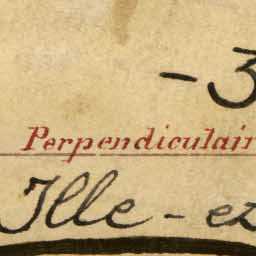 -3
Perpendiculair
Ille-ez